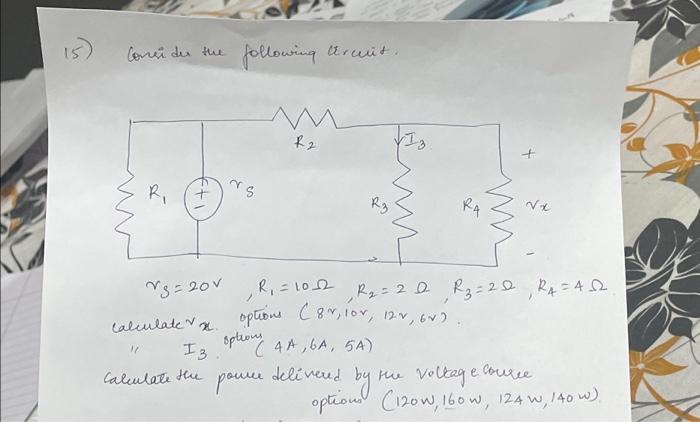 15) Consider the following circuit.
R2
I3
+
R1
+
-
vs
R3
R4
vx
-
vs = 20V , R1 = 10 Ω , R2 = 2 Ω , R3 = 2 Ω , R4 = 4 Ω
calculate v x. options (8V, 10V, 12V, 6V).
" I3. options (4A, 6A, 5A)
Calculate the power delivered by the voltage source
options (120W, 160W, 124W, 140W)